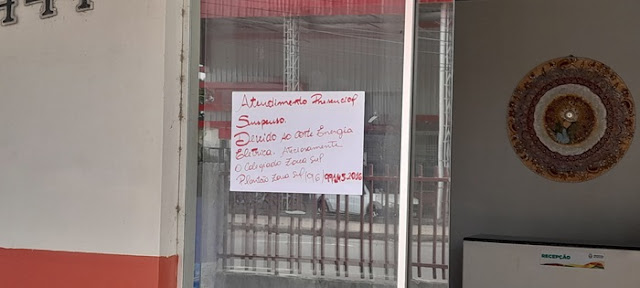 444
Atendimento Presencial
Suspenso.
Devido ao corte Energia
Elétrica. Atenciosamente
O Colegiado Zona Sul
Plantão Zona Sul (96)
RECEPÇÃO